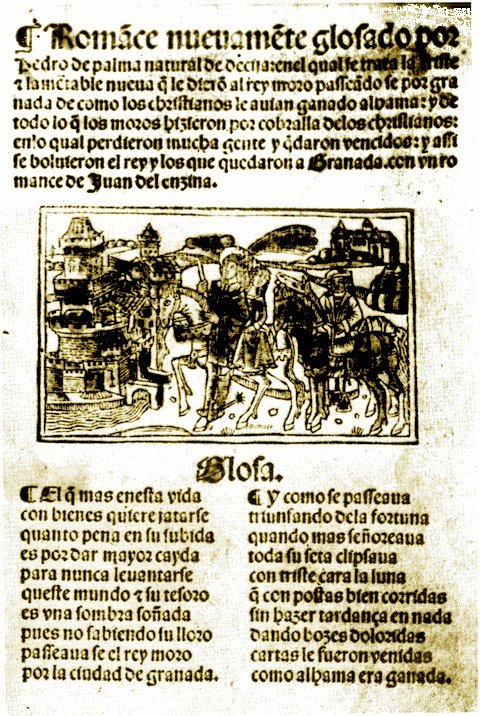 ¶ Romāce nueuamēte glosado por
Pedro de palma natural de
enel qual se trata la triste
⁊ lamētable nueua q̄ le dierō al rey moro passeādo se por gra
nada de como los christianos le auian ganado alhama: y de
todo lo q̄ los moros hizieron por cobralla delos christianos:
enlo qual perdieron mucha gente y q̄daron vencidos: y assi
se boluieron el rey y los que quedaron a Granada. con vn ro
mance de Juan del enzina.
Glosa.
¶ El q̄ mas enesta vida
con bienes quiere jatarse
quanto pena en su subida
es por dar mayor cayda
para nunca leuantarse
queste mundo ⁊ su tesoro
es vna sombra soñada
pues no sabiendo su lloro
passeaua se el rey moro
por la ciudad de granada.
¶ Y como se passeaua
triunfando dela fortuna
quando mas señoreaua
toda su seta clipsaua
con triste cara la luna
q̄ con postas bien corridas
sin hazer tardança en nada
dando bozes doloridas
cartas le fueron venidas
como alhama era ganada.